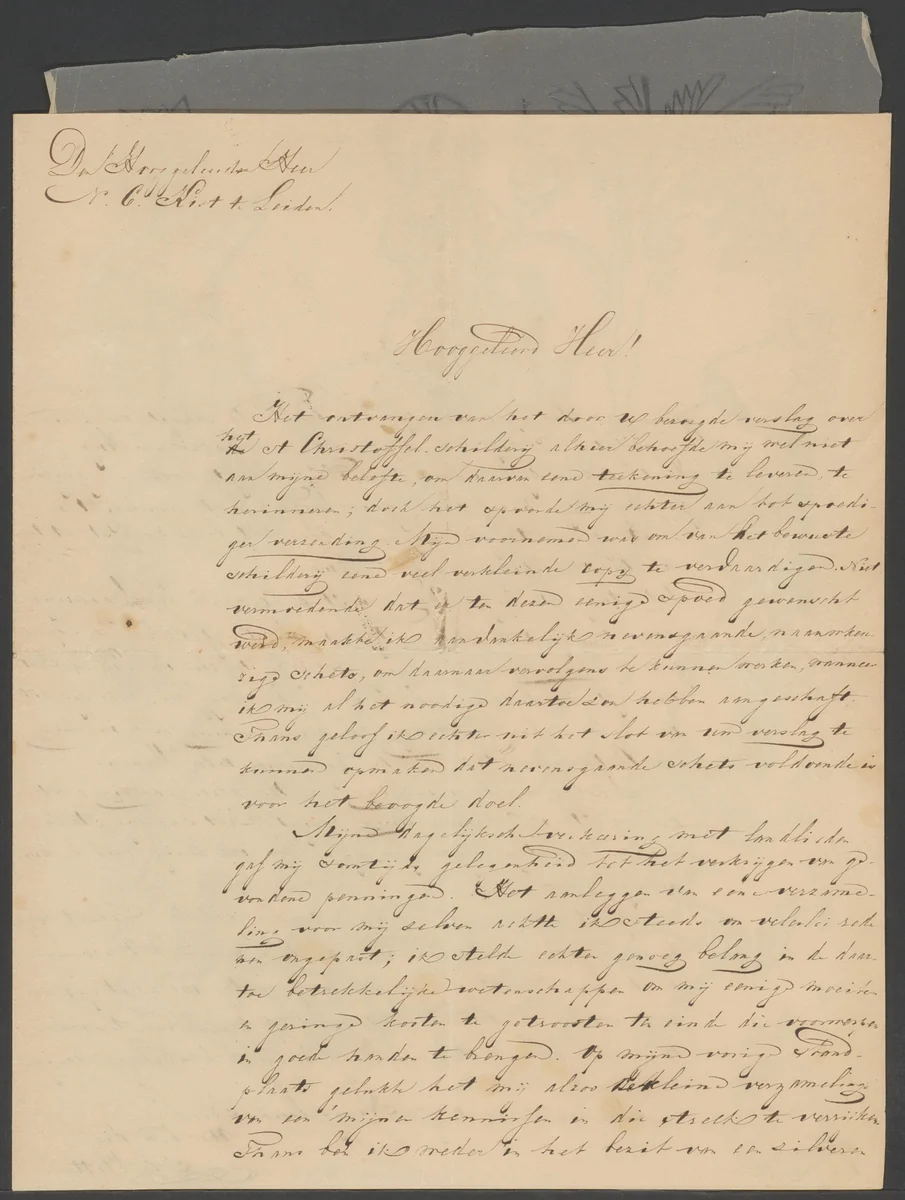 Den Hooggeleerden Heer
N. C. Kist te Leiden!
Hooggeleerd Heer!
Het ontvangen van het door U bezorgde verslag over
het St Christoffel-schilderij alhier behoefde mij wel niet
aan mijne belofte, om daarvan eene teekening te leveren, te
herinneren; doch het spoorde mij echter aan tot spoedi-
ger verzending. Mijn voornemen was om van het bewuste
schilderij eene veel verkleinde copy te vervaardigen. Niet
vermoedende dat er ten dezen eenige spoed gewenscht
werd, maakte ik aanvankelijk nevensgaande, naauwkeu
rige schets, om daarnaar vervolgens te kunnen werken, wanneer
ik mij al het noodige daartoe zou hebben aangeschaft.
Thans geloof ik echter uit het slot van uw verslag te
kunnen opmaken dat nevensgaande schets voldoende is
voor het beoogde doel.
Mijne dagelijksche verkeering met landlieden
gaf mij somtijds gelegenheid tot het verkrijgen van ge-
vondene penningen. Het aanleggen van eene verzame-
ling voor mij zelven achtte ik steeds om velerlei rede
nen ongepast; ik stelde echter genoeg belang in de daar-
toe betrekkelijke wetenschappen om mij eenige moeiten
en geringe kosten te getroosten ten einde die voorwerpen
in goede handen te brengen. Op mijne vorige stand-
plaats gelukte het mij alzoo de kleine verzameling
van een mijner kennissen in die streek te verrijken
Thans ben ik weder in het bezit van een zilveren